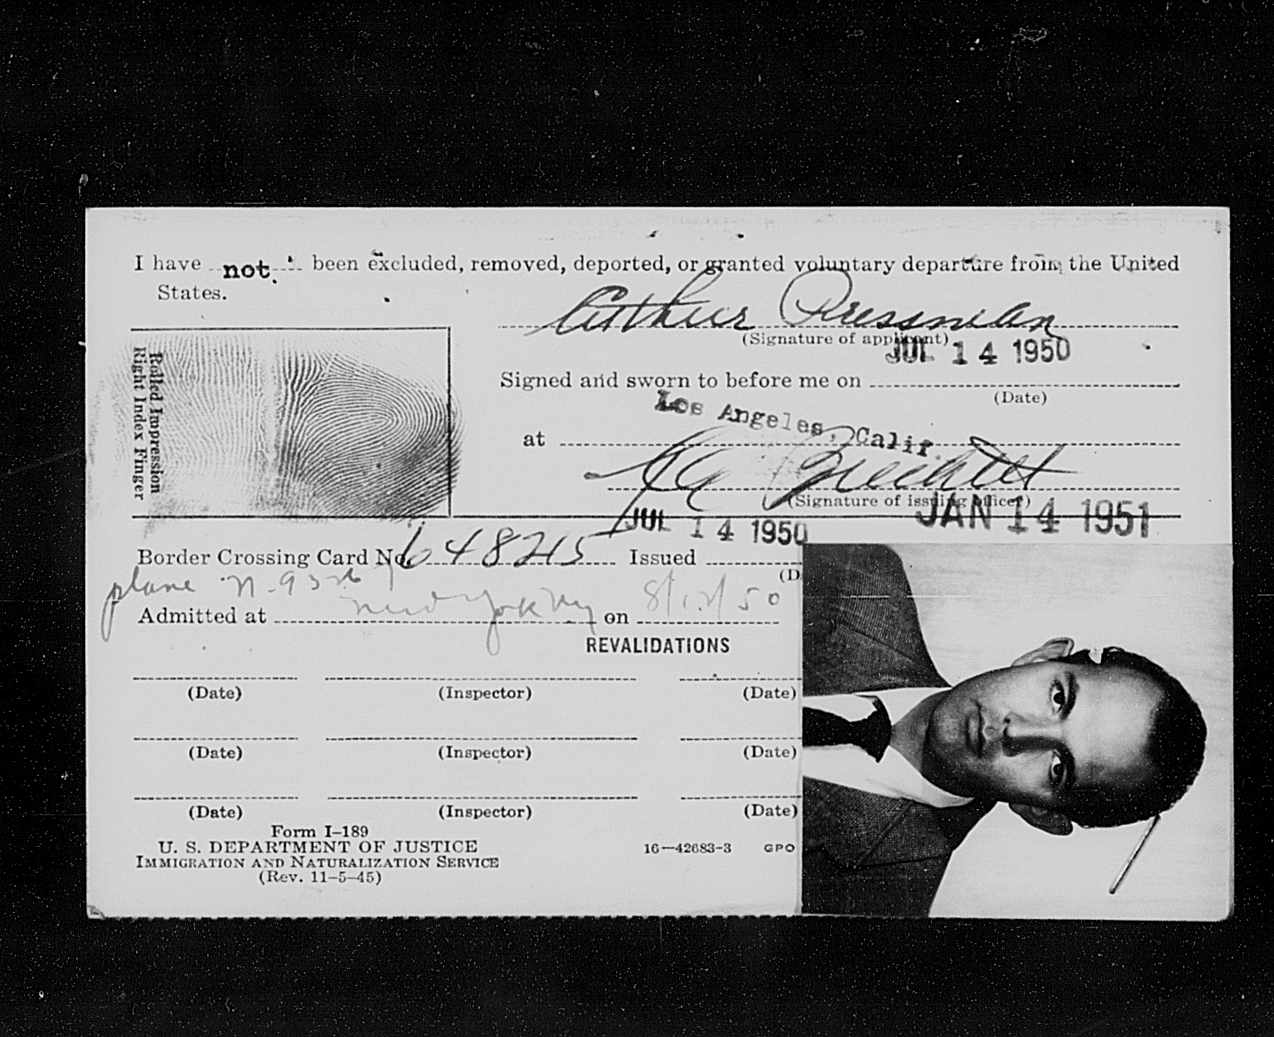 I have not been excluded, removed, deported, or granted voluntary departure from the United
States.
Arthur Pressman
(Signature of applicant)
JUL 14 1950
Rolled Impression
Right Index Finger
Signed and sworn to before me on
(Date)
Los Angeles, Calif.
at
(Signature of issuing officer)
JAN 14 1951
JUL 14 1950
Border Crossing Card No. 648215 Issued
(D
plane N-93
Admitted at New York NY on 8/12/50
REVALIDATIONS
(Date) (Inspector) (Date)
(Date) (Inspector) (Date)
(Date) (Inspector) (Date)
Form I-189
U. S. DEPARTMENT OF JUSTICE 16—42683-3 GPO
IMMIGRATION AND NATURALIZATION SERVICE
(Rev. 11-5-45)